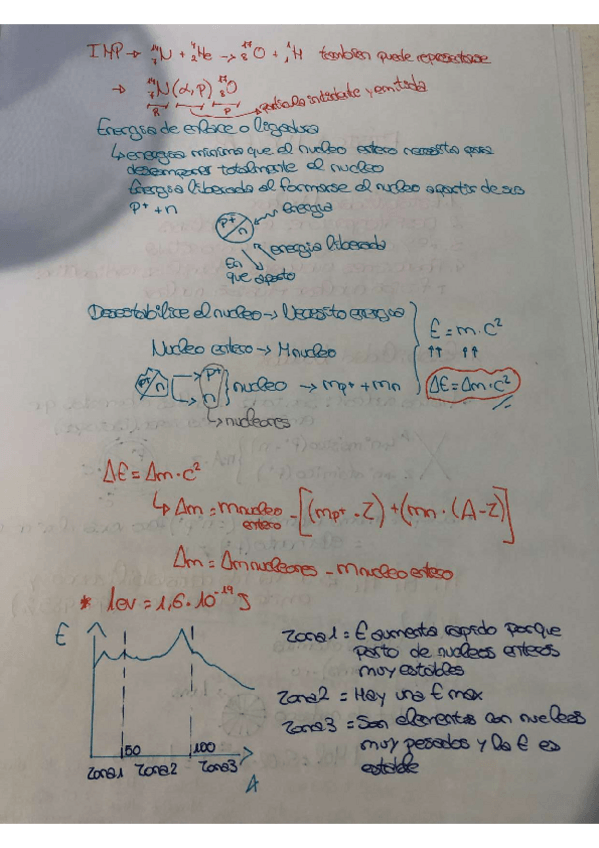 IMP → ¹⁴₇N + ⁴₂He → ¹⁷₈O + ¹₁H también puede representarse
→ ¹⁴₇N (α, p) ¹⁷₈O
R P partícula incidente y emitida
Energía de enlace o ligadura
↳ energía mínima que el nucleo entero necesita para
desemperar totalmente el nucleo
Energía liberada al formarse el nucleo a partir de sus
p⁺ + n
energía
p⁺ n
energía liberada
En
que aporto
Desestabilice el nucleo → Necesito energía
E = m·c²
Nucleo entero → M nucleo
↑↑ ↑↑
p⁺ n → p⁺ n } nucleo → mp⁺ + mn
ΔE = Δm·c²
↳ nucleones
ΔE = Δm·c²
↳ Δm = m nucleo entero - [(mp⁺ · Z) + (mn · (A-Z)]
Δm = Δm nucleones - m nucleo entero
* 1ev = 1,6·10⁻¹⁹ J
E
50 100
Zona 1 Zona 2 Zona 3
A
Zona 1 = E aumenta rapido porque
parto de nucleos enteros
muy estables
Zona 2 = Hay una E max
Zona 3 = Son elementos con nucleos
muy pesados y la E es
estable